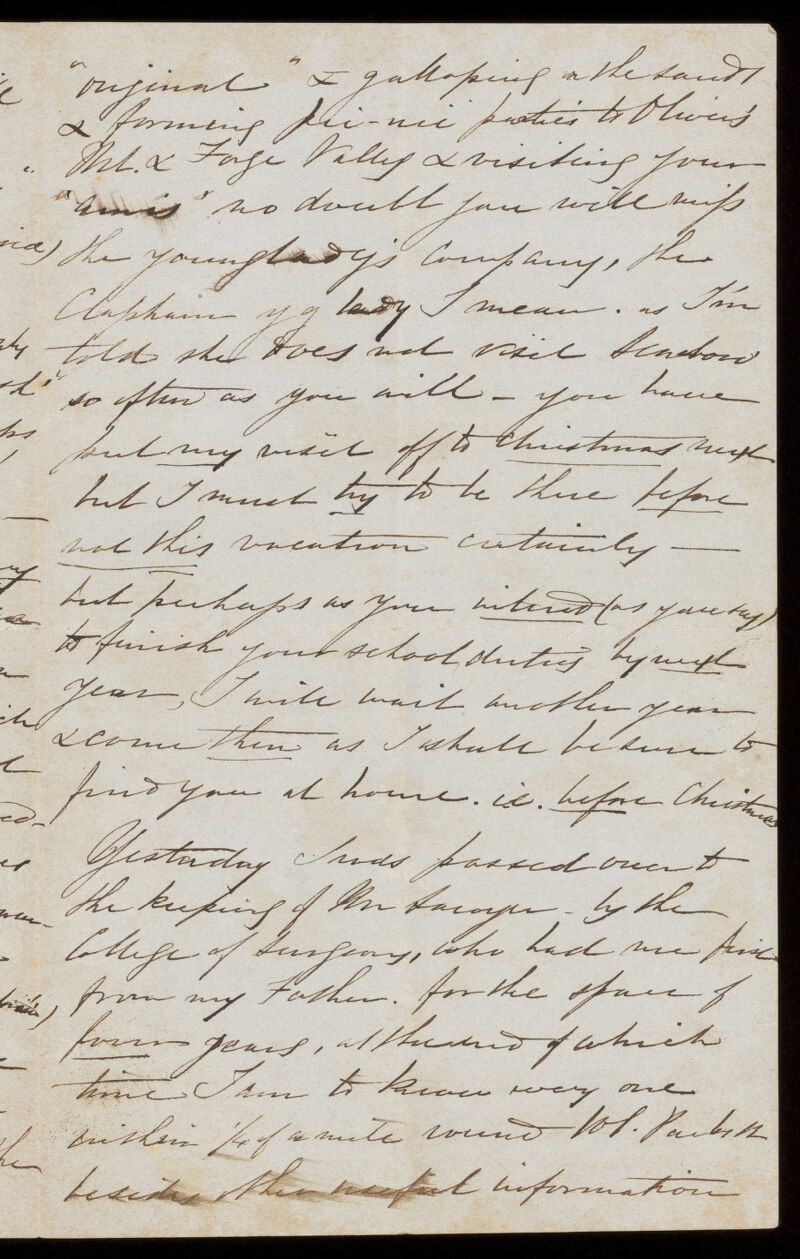 "original" & galloping on the sands
& forming pic-nic parties to Oliver's
Mt. & Forge Valley & visiting your
"amis" no doubt you will miss
the young lady's company, the
Clapham yg lady I mean. as I'm
told she does not visit Scarboro'
so often as you will - you have
put my visit off to Christmas next
but I must try to be there before
not this vacation certainly —
but perhaps as you intend (as you say)
to finish your school duties by next
year, I will wait another year
& come then as I shall be sure to
find you at home. i.e. before Christmas
Yesterday I was passed over to
the keeping of Mr Sawyer - by the
College of Surgeons, who had me first
from my Father. for the space of
four years, at the end of which
time I am to know every one
within ¼ of a mile round
besides other useful information